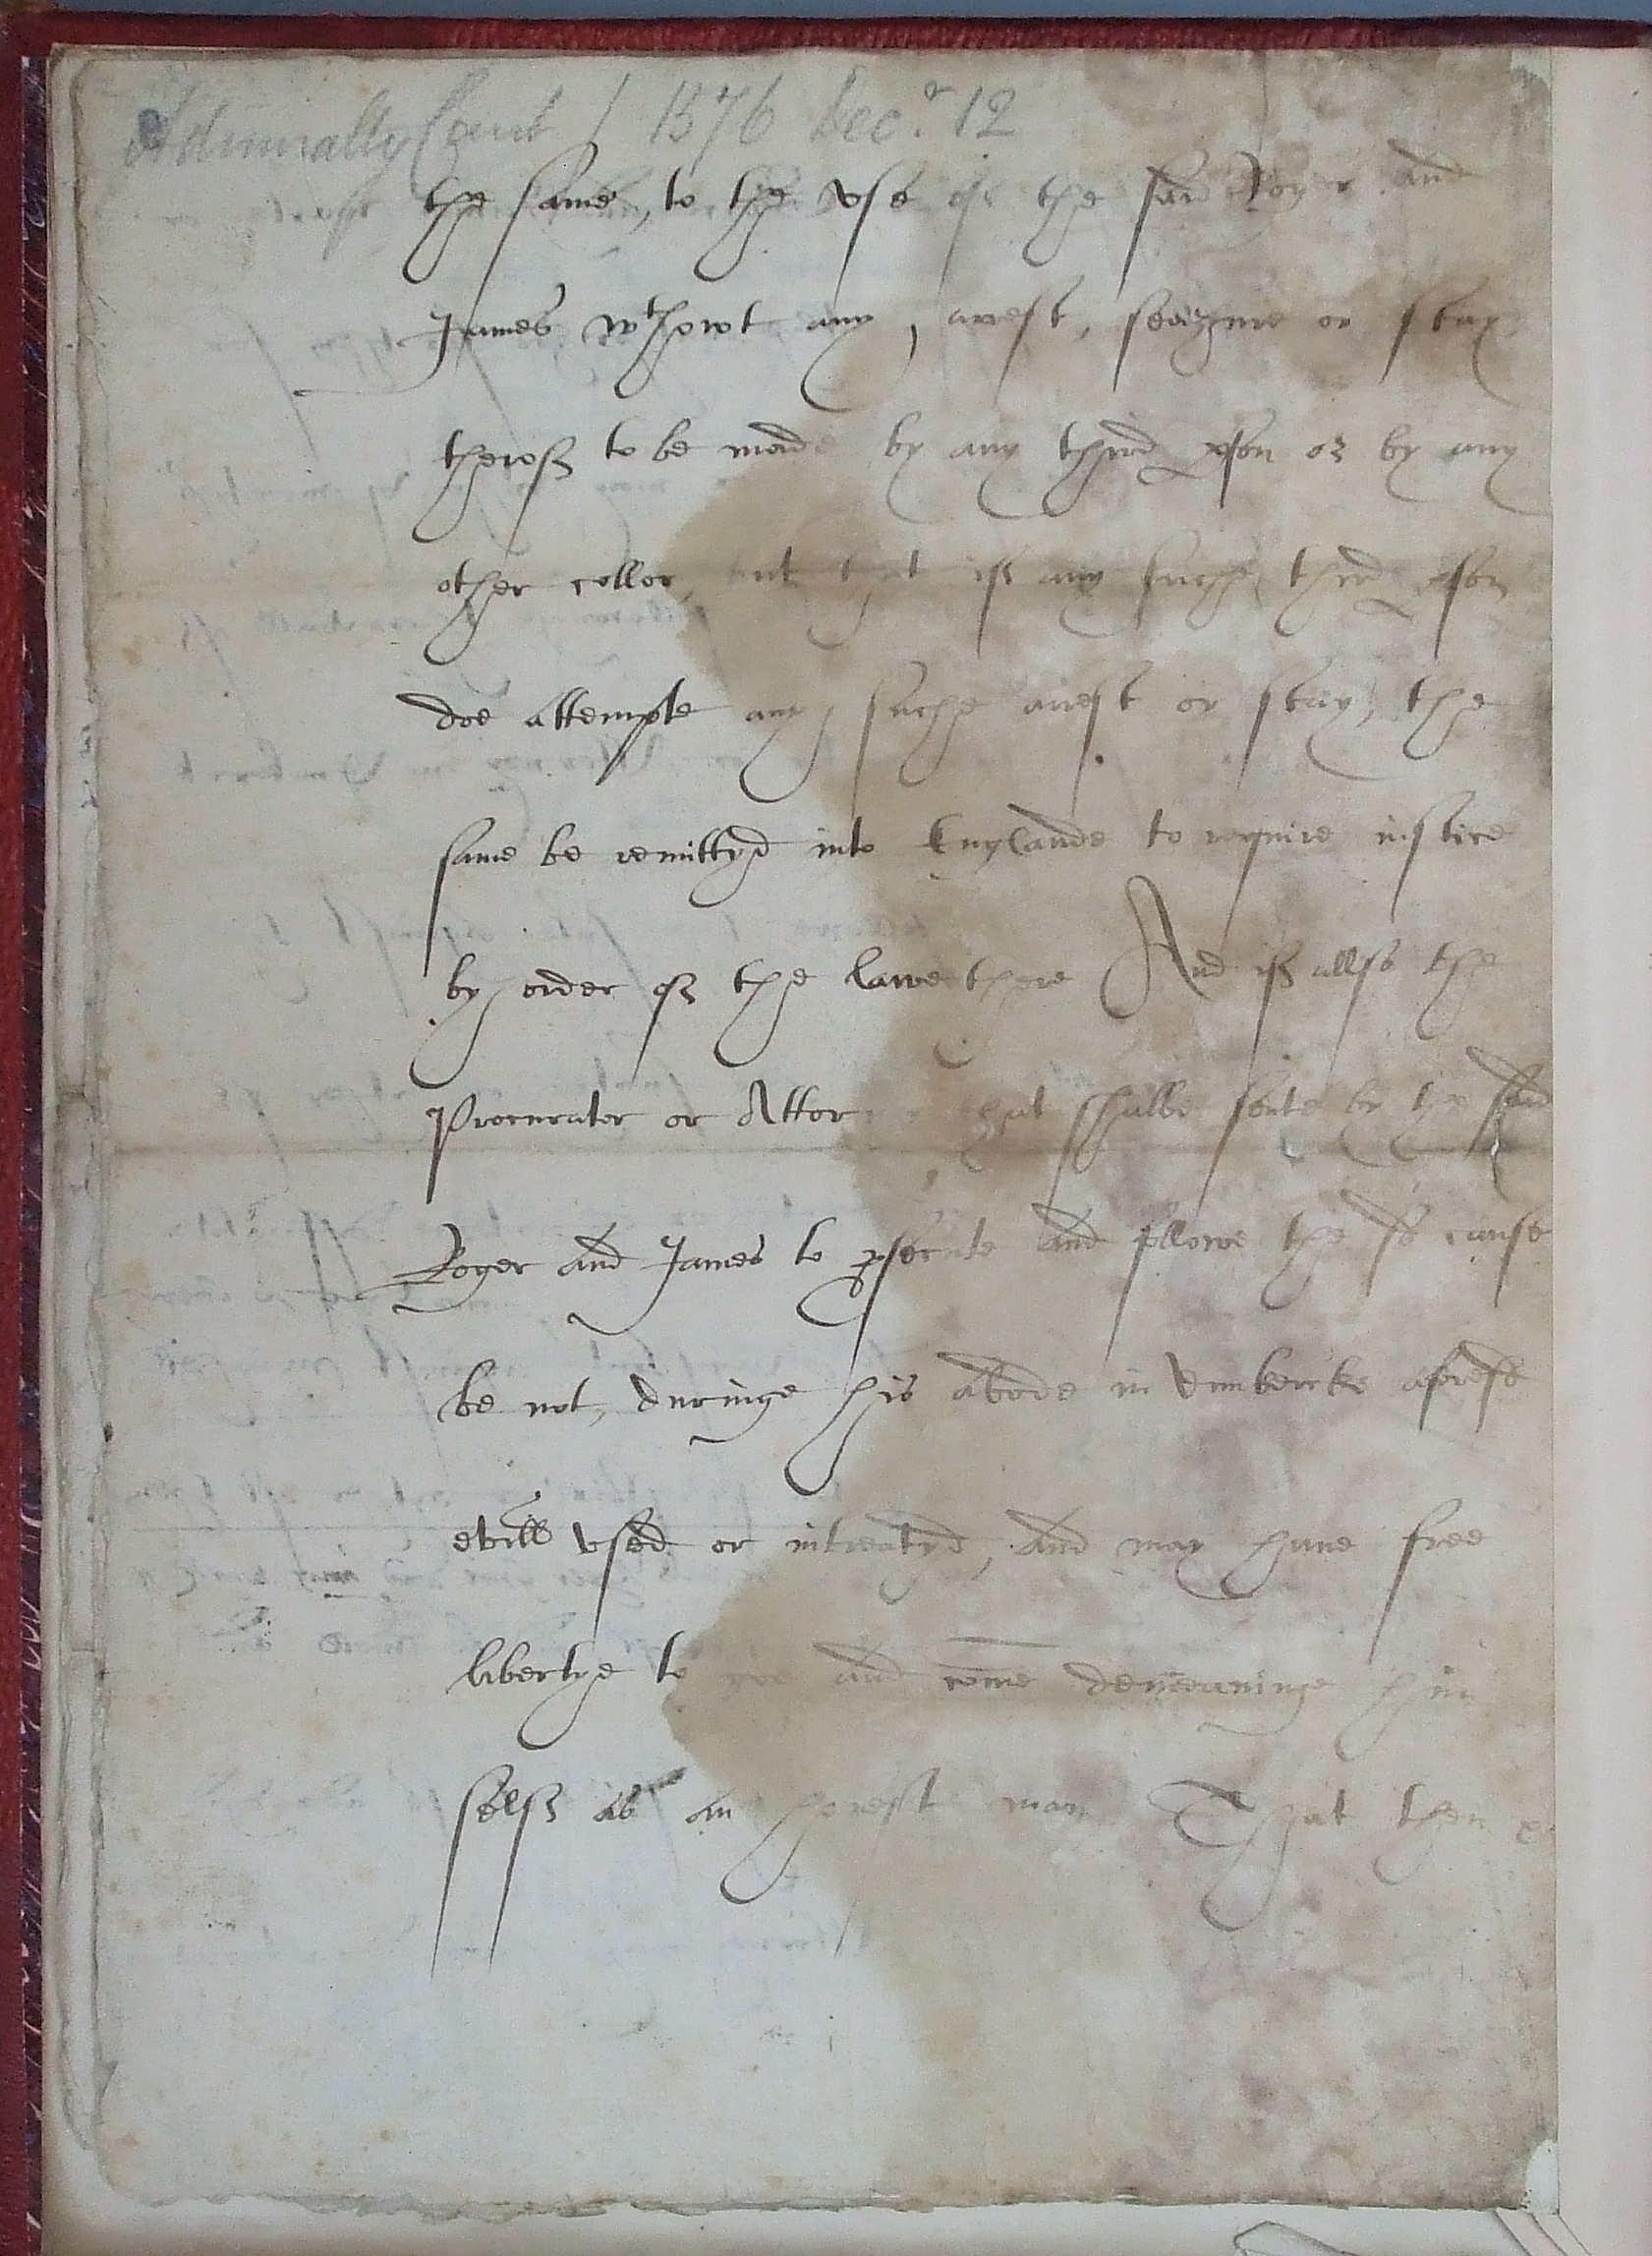 Admiralty Court / 1576 Decr. 12
the same, to the vse of the said Roger and
James wthowt any, arrest, seazure or stay
therof to be made by any third pson or by any
other collor, but that if any suche third pson
doe attempte any suche arrest or stay, the
same be remittyd into Englande to require iustice
by order of the lawe there And if allso the
Procurator or Attor that shalbe sente by the said
Roger and James to psecute and followe the sd cause
be not, duringe his abode in Dunkercke aforesd
evill vsed or intreatyd, and may haue free
libertye to goe and come demeaninge him
self as an honest man That then